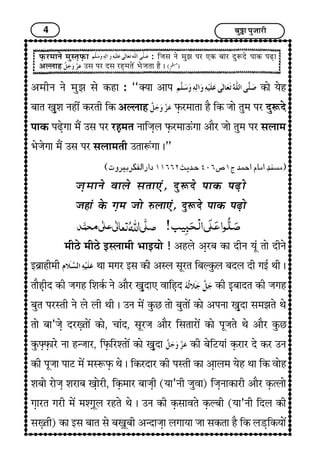 4 बुड्ढा पुजारी
फ़रमाने मुस्तफ़ा صَلَّى اللّٰهُ تَعَالٰى عَلَيْهِ وَاٰلِهٖ وَسَلَّم : जिस ने मुझ पर एक बार दुरूदे पाक पढ़ा।
अल्लाह عَزَّوَجَلَّ उस पर दस रहमतें भेजता है। (مسلم)
अमीन ने मुझ से कहा : ‘‘क्या आप صَلَّى اللّٰهُ تَعَالٰى عَلَيْهِ وَاٰلِهٖ وَسَلَّم को येह
बात खुश नहीं करती कि अल्लाह عَزَّوَجَلَّ फ़रमाता है कि जो तुम पर दुरूदे
पाक पढ़ेगा मैं उस पर रहमत नाज़िल फ़रमाऊंगा और जो तुम पर सलाम
भेजेगा मैं उस पर सलामती उतारूंगा।’’
(مسند امام احمد ج١ص٤٠٦ حديث١١٦٦٢ دارالفكربيروت)
ज़माने वाले सताएं, दुरूदे पाक पढ़ो
जहां के ग़म जो रुलाएं, दुरूदे पाक पढ़ो
صَلُّوا عَلَى الْحَبِيب ! صَلَّى اللّٰهُ تَعَالٰى عَلٰى مُحَمَّد
मीठे मीठे इस्लामी भाइयो ! अहले अरब का दीन यूं तो दीने
इब्राहीमी عَلَيْهِ السَّلَام था मगर इस की अस्ल सूरत बिल्कुल बदल दी गई थी।
तौहीद की जगह शिर्क ने और खुदाए वाहिद جَلَّ جَلَالُهٗ की इबादत की जगह
बुत परस्ती ने ले ली थी। उन में कुछ तो बुतों को अपना खुदा समझते थे
तो बा'ज़े दरख़्तों को, चांद, सूरज और सितारों को पूजते थे और कुछ
कुफ़्फ़ारे ना हन्जार, फ़िरिश्तों को खुदा عَزَّوَجَلَّ की बेटियां क़रार दे कर उन
की पूजा पाट में मसरूफ़ थे। किरदार की पस्ती का आलम येह था कि वोह
शबो रोज़ शराब ख़ोरी, क़िमार बाज़ी (या'नी जुवा) ज़िनाकारी और क़त्लो
ग़ारत गरी में मश्ग़ूल रहते थे। उन की क़सावते क़ल्बी (या'नी दिल की
सख़्ती) का इस बात से बखूबी अन्दाज़ा लगाया जा सकता है कि लड़कियों